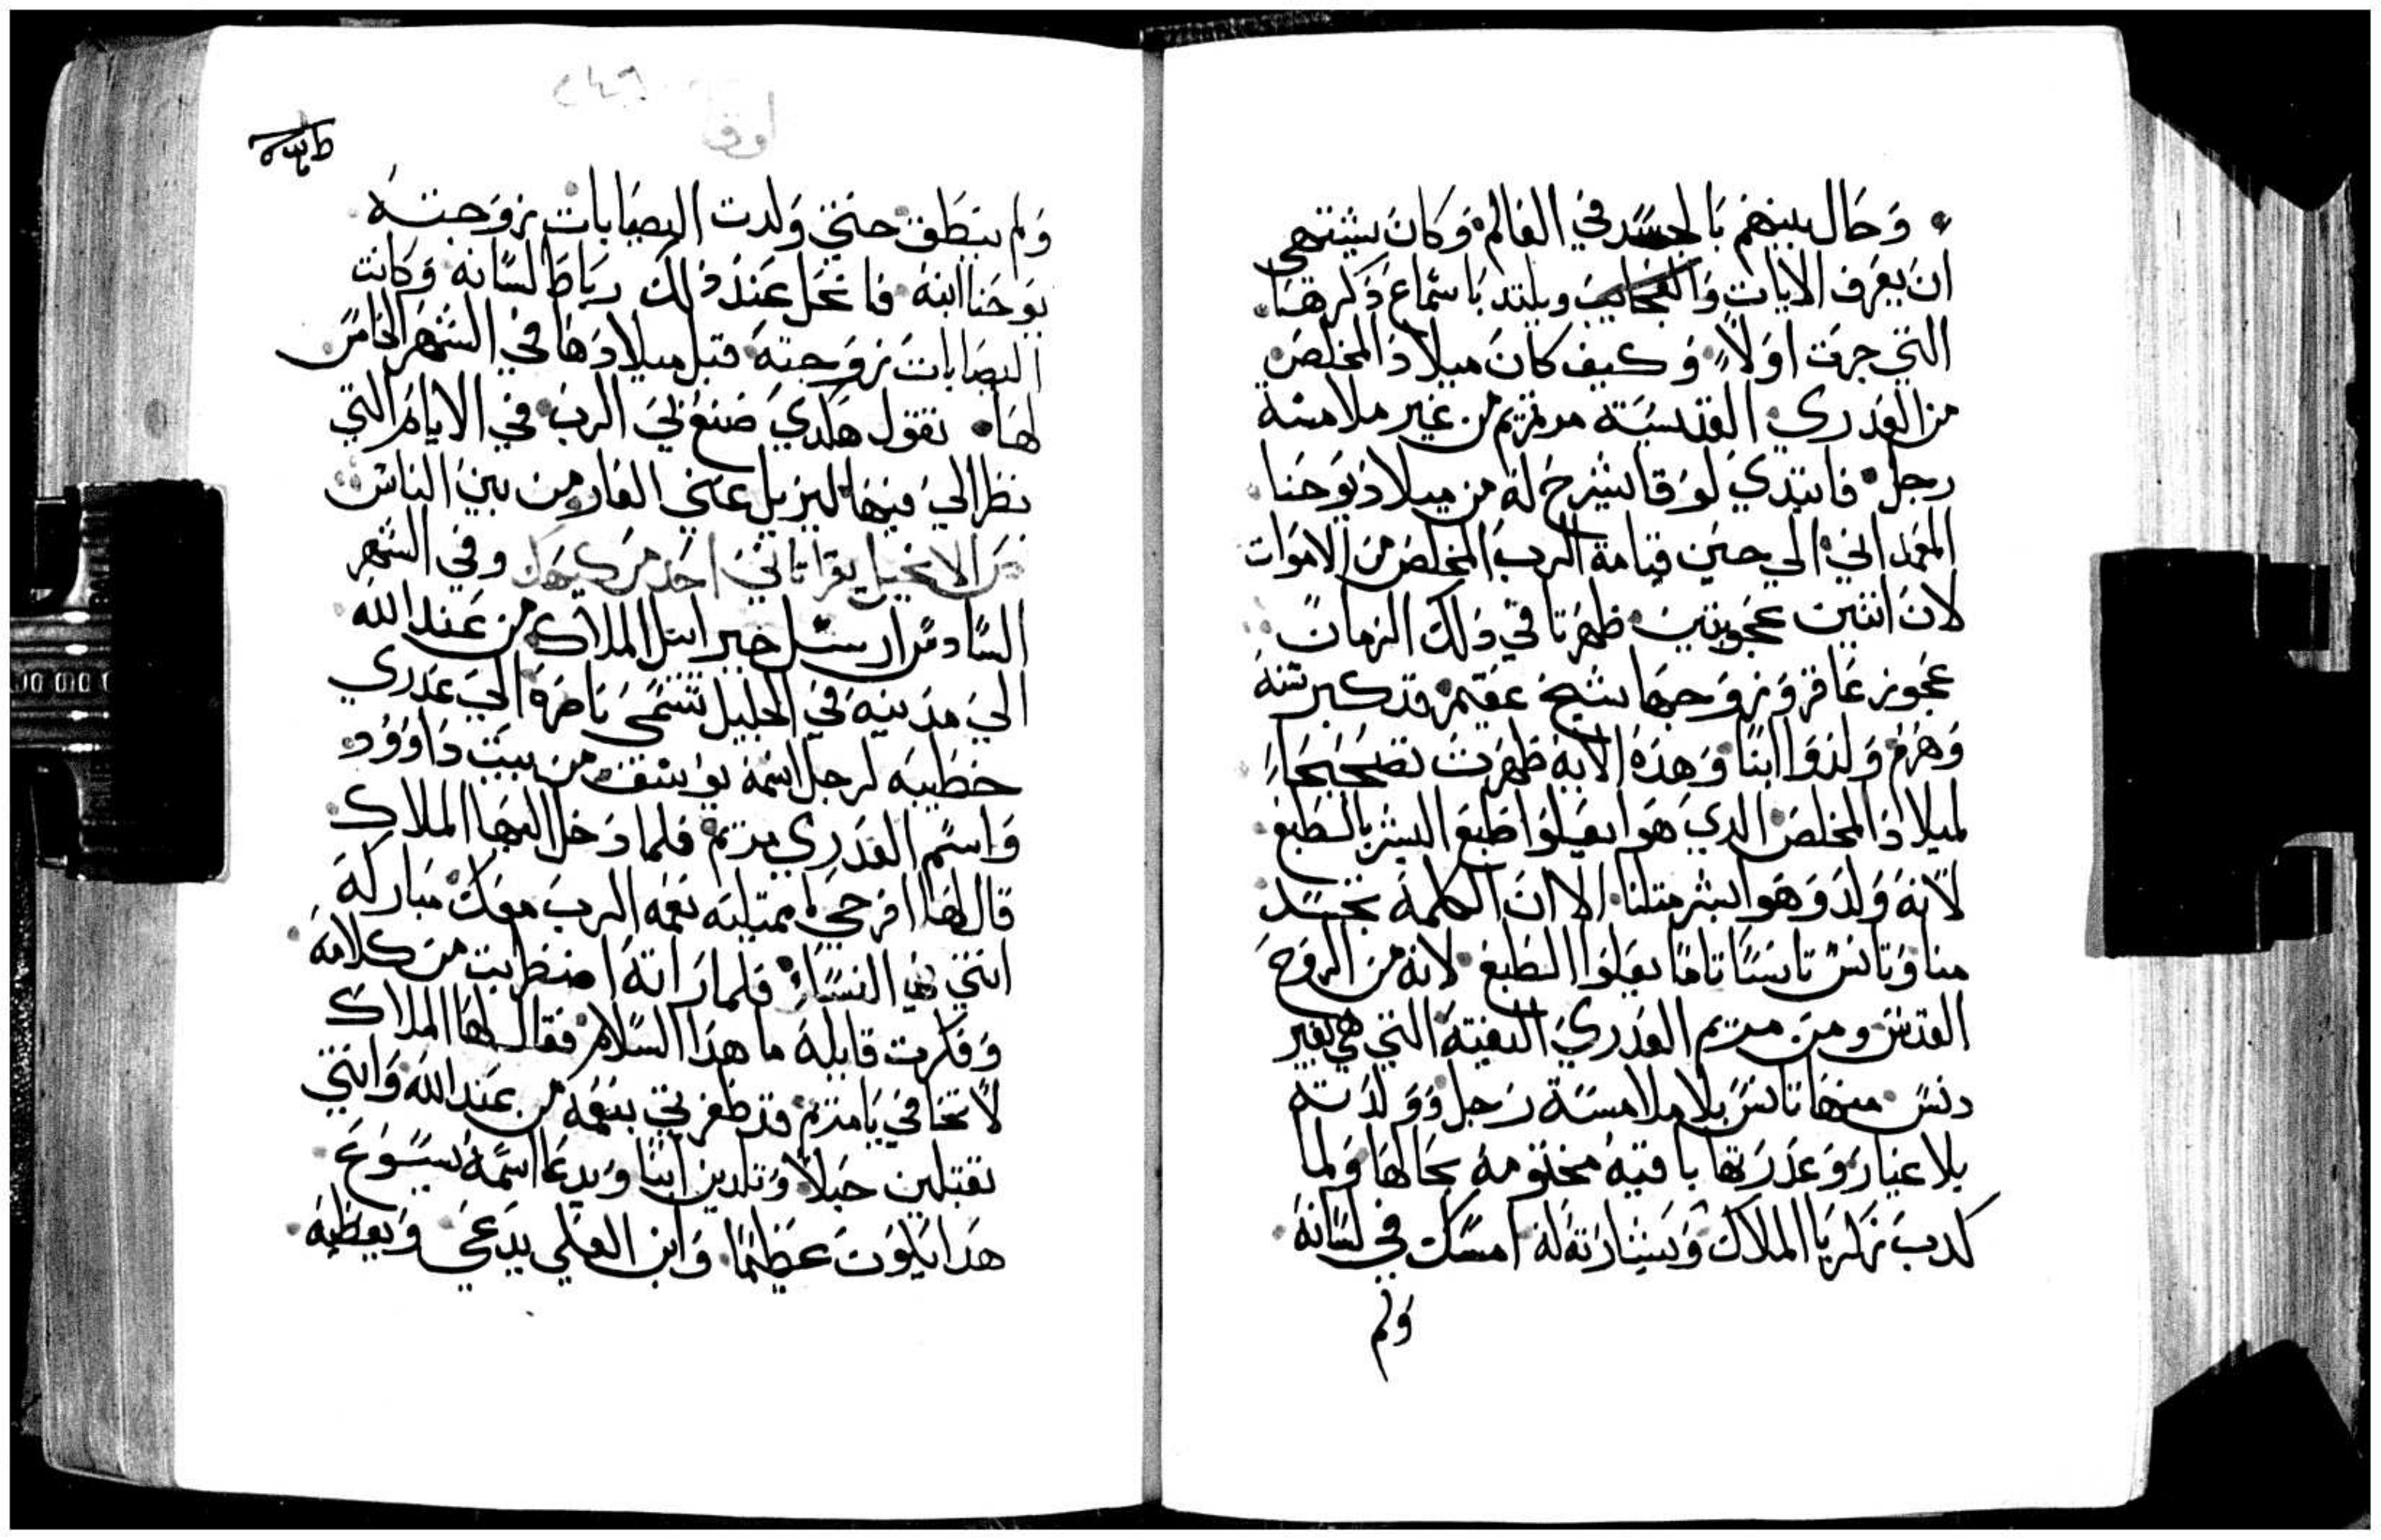 وَحَال بينهم بَالجسَد في العَالم وَكانَ يشتهي
ان يعرَف الايات وَالعجَايبَ ويلتد باستماع دَكرهَا
التي جرت اولاً وَكيف كانَ ميلاد المخلصَ
من العَدري القديسَة مرتمريم من غير ملامسَة
رجل فابتدي لوقا يشرح له من ميلاد يوحَنا
المعمداني الي حين قيامة الرب المخلصَ من الاموَات
لان اثنين عجوبتين ظهرتا في دلك الزمان
عَجوز عَاقر وَزوجها شيخ عقيم قد كبر سنه
وَهرم وَلدوا ابنًا وَهدَه الايه ظهرت تصحيحًا
لميلاد المخلصَ الدي هوَا يعلوا طبع البشر بالطبع
لانه وَلد وَهوا بشر متلنا الا ان الكلمة تجسَد
منا وَتانسَ تانسًا تامًا يعلوا الطبع لانه من الروح
القدسَ ومن مريم العدري النقية التي هي بغير
دنسَ منها تانسَ بلا ملامسَة رَجل وَولدَته
بلا عيار وَعدرَتها باقيه مختومه بحَالها وَلما
كدب زكريا الملاك وَبشارته له امسَك في لسَانه
وَلم
اوقا
وَلم ينطق حتي وَلدت اليصَابات زوجته
يوحَنا ابنه فانحَل عند دلك رباط لسَانه وَكانت
اليصَابات زوجته قبل ميلادهَا في الشهر الخامسَ
لها تقول هَكدي صَنع بي الرب في الايام التي
نظر الي فيها ليزيل عني العَار من بين الناسَ
الانجيل يقرا تاني احَد من كيهك وفي الشهر
السَادسَ ارسَل جبراييل الملاك من عند الله
الي مدينه في الجليل تسَمى ناصَره الي عدري
خطيبه لرجل اسمه يوسَف من بيت دَاوُود
وَاسَم العَدري مريم فلما دخل اليها الملاك
قال لها افرحي يا ممتليه نعمه الرب معك مبَاركة
انتي في النسَاء فلما رَاته اضطربت من كلامه
وَفكرت قايله ما هدا السَلام فقال لها الملاك
لا تخافي يا مريم قد ظفرتي بنعمه من عند الله وَانتي
تقبلين حبلا وَتلدين ابنًا وَيدعَا اسمه يسوع
هدا يكون عظيمًا وَابن العَلي يدعي وَيعطيه